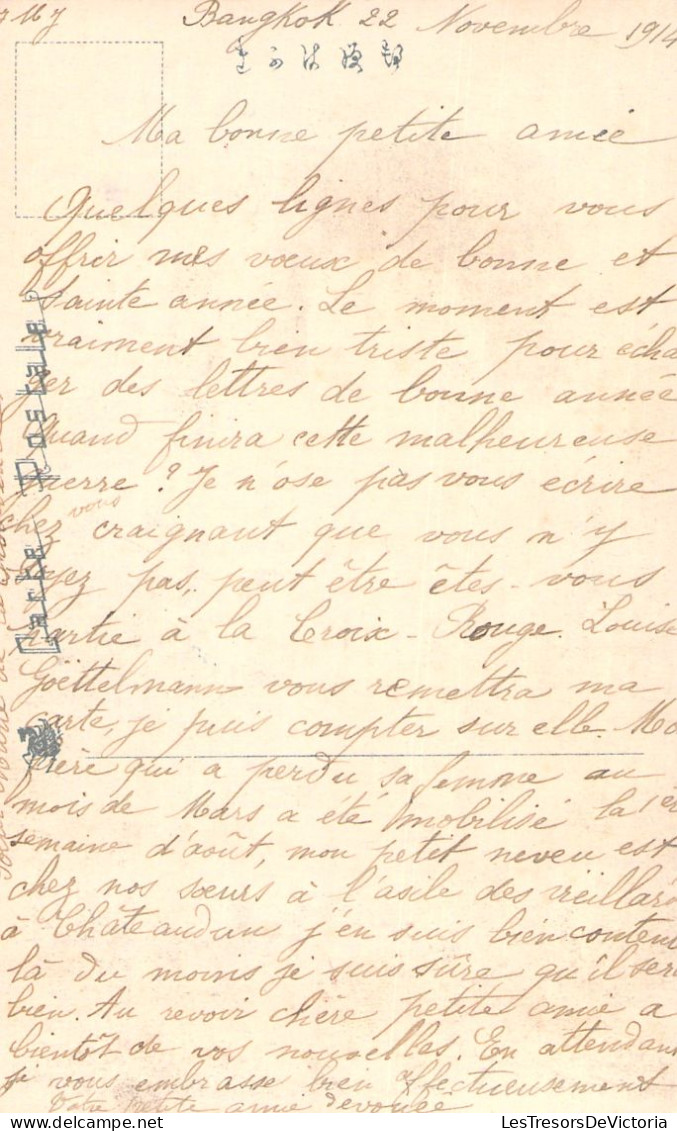 Bangkok 22 Novembre 1914
Ma bonne petite amie
Quelques lignes pour vous
offrir mes vœux de bonne et
Sainte année. Le moment est
vraiment bien triste pour écha
ger des lettres de bonne année
Quand finira cette malheureuse
guerre ? Je n'ose pas vous écrire
chez vous craignant que vous n'y
soyez pas, peut être êtes-vous
partie à la Croix-Rouge. Louise
Goettelmann vous remettra ma
carte, je puis compter sur elle. Mo
frère qui a perdu sa femme au
mois de Mars a été mobilisé la 1er
semaine d'août, mon petit neveu est
chez nos sœurs à l'asile des vieillard
à Châteaudun j'en suis bien contente
là du moins je suis sûre qu'il sera
bien. Au revoir chère petite amie a
bientôt de vos nouvelles. En attendant
je vous embrasse bien affectueusement
Votre petite amie dévouée
Carte Postale
LesTresorsDeVictoria